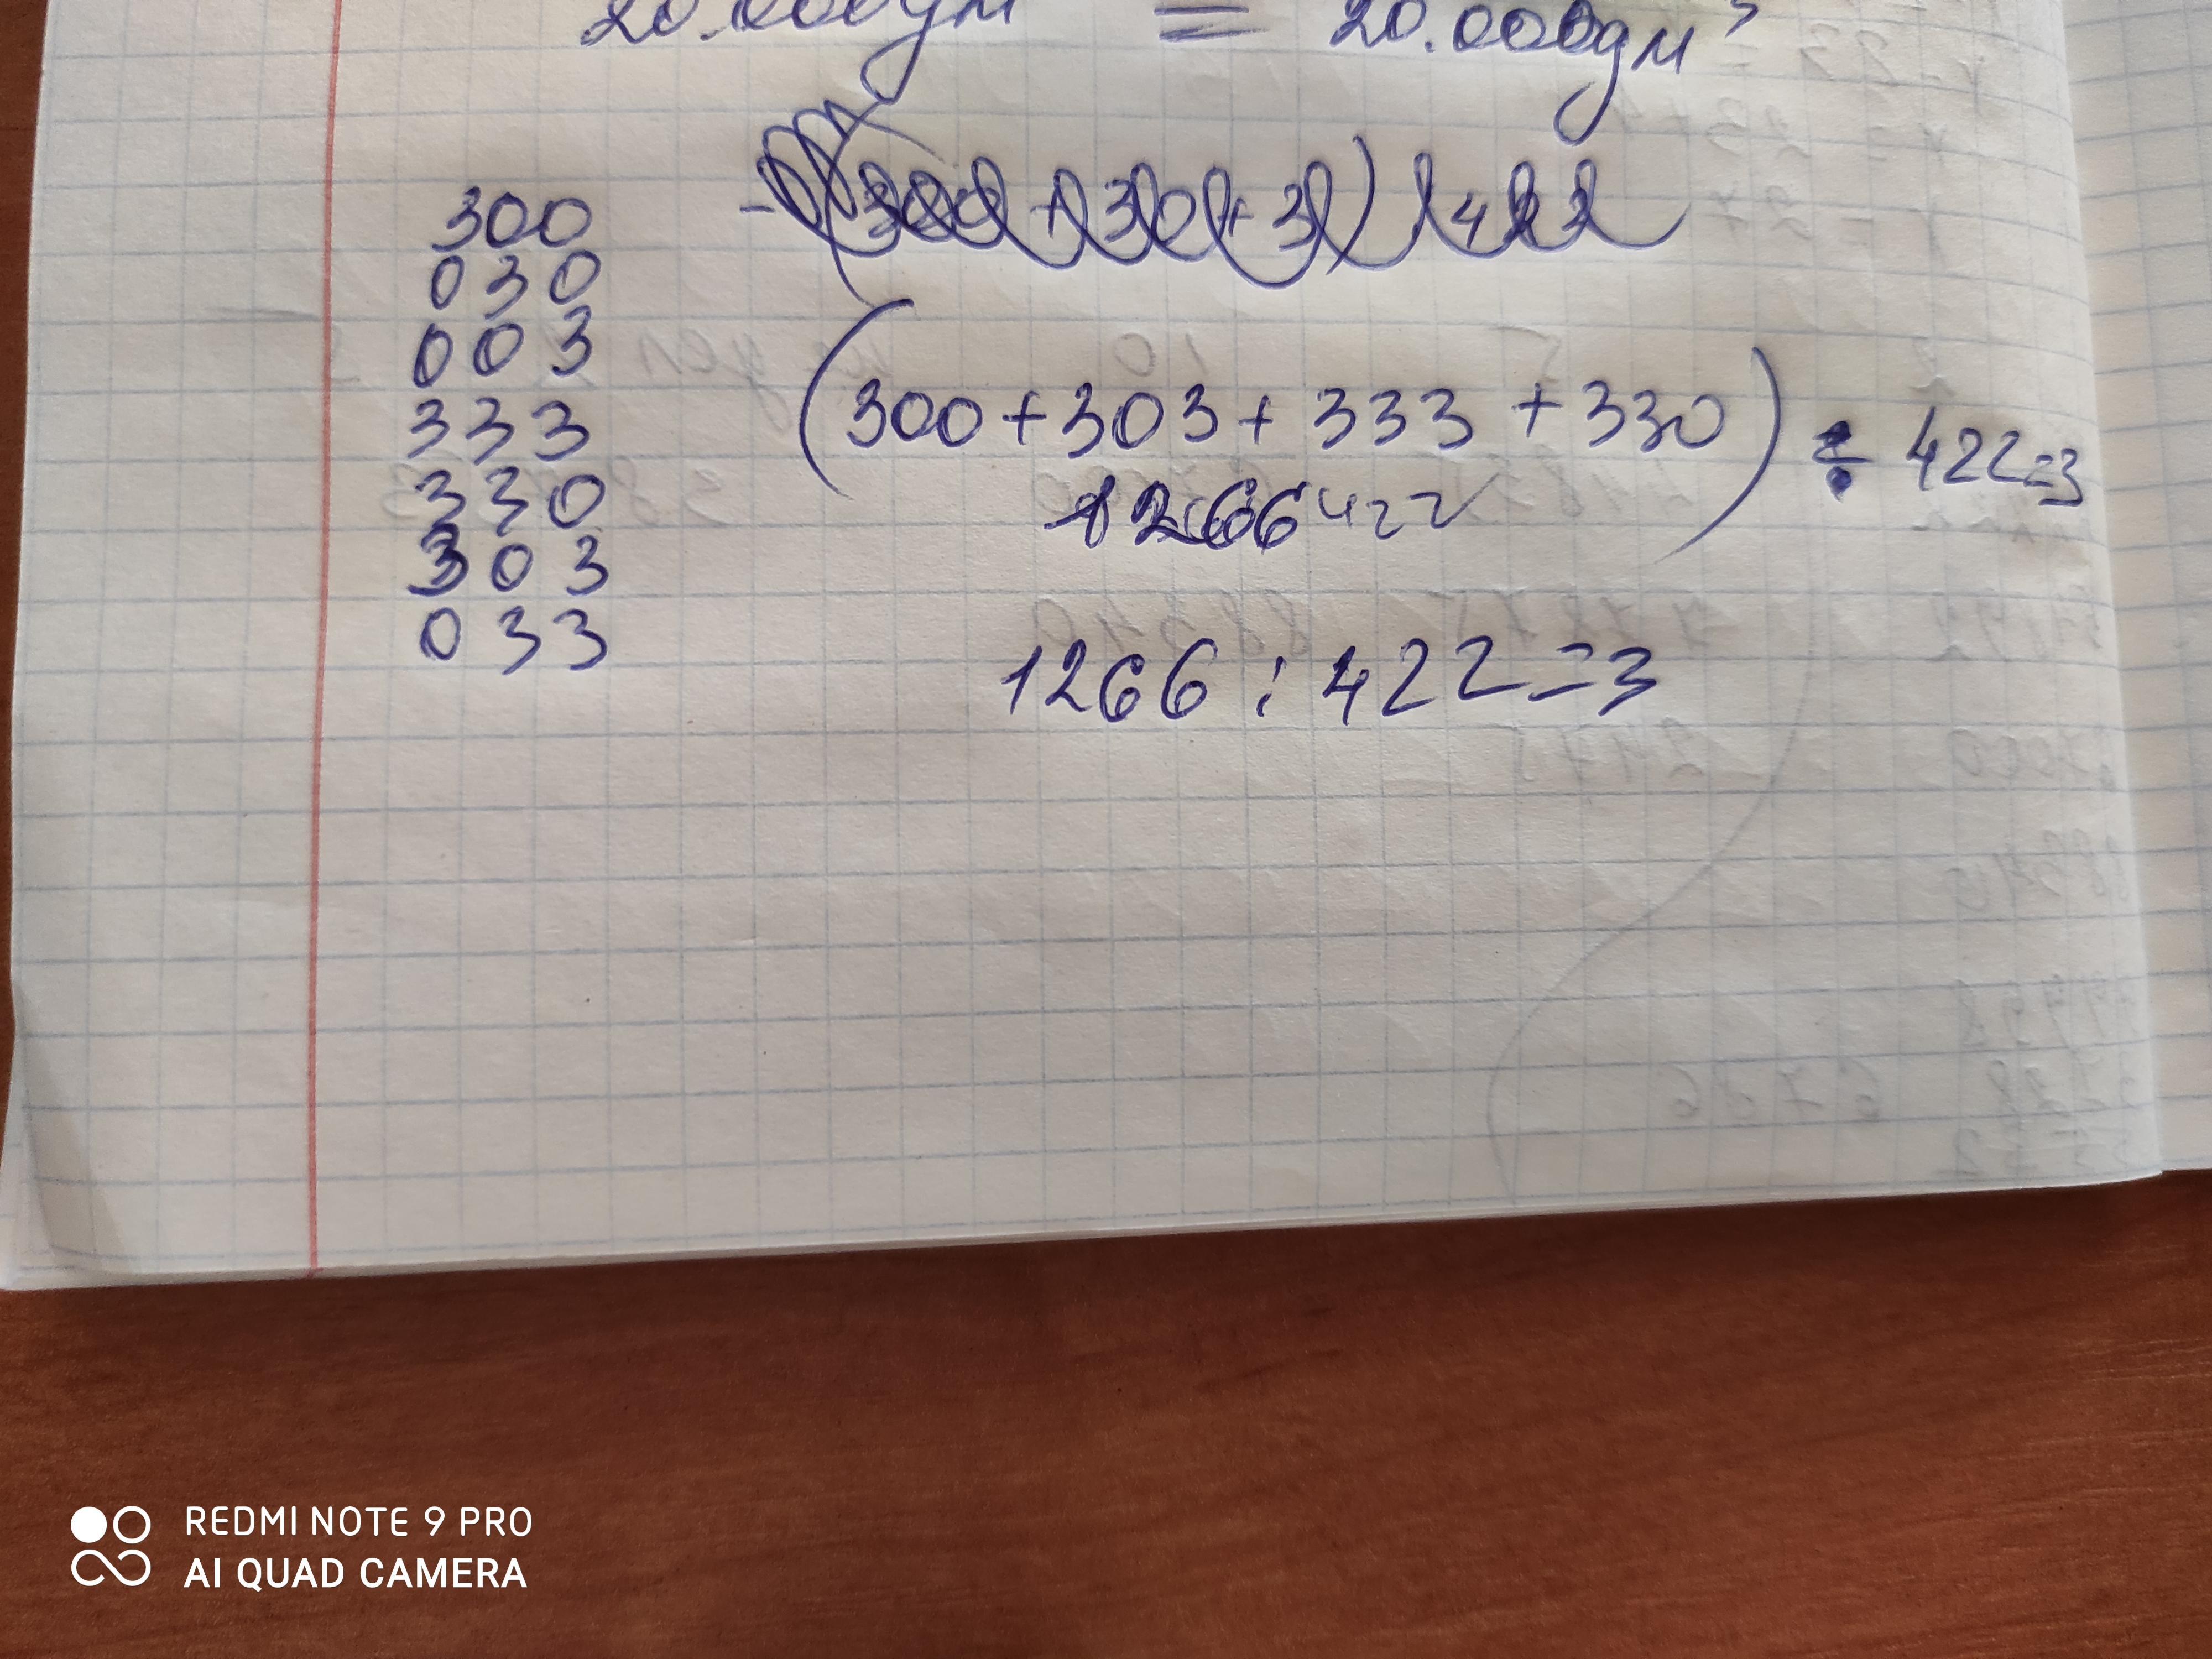 20.000дм = 20.000дм³
300
030
003
333
330
303
033
(300+30+3) 422
(300+303+333+330) : 422=3
1266 422
1266 : 422=3
REDMI NOTE 9 PRO
AI QUAD CAMERA